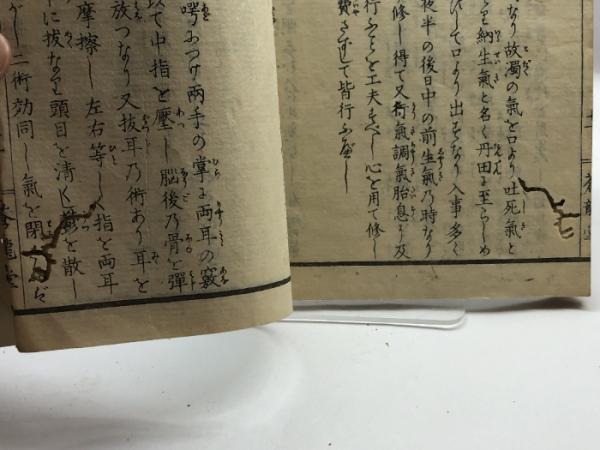 なり故濁の氣を口より吐死氣と
を納生氣と名く丹田に至らしめ
して口より出すなり人事多く
夜半の後日中の前生氣乃時なり
修し得て又行氣調氣胎息に及
行ふことを工夫すべし心を用て修し
費さずして皆行ふべし
おつけ兩手の掌に両耳の竅
以て中指を壓し脳後乃骨を彈
放つなり又抜耳乃術あり耳を
摩擦し左右等しく指を両耳
に抜なり頭目を清く を散し
がし二術効同し氣を閉
龍堂